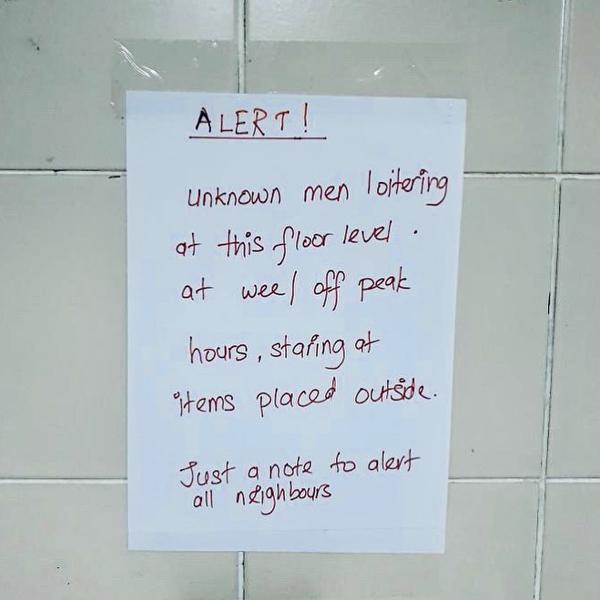 ALERT!
unknown men loitering
at this floor level .
at wee/ off peak
hours, staring at
items placed outside.
Just a note to alert
all neighbours